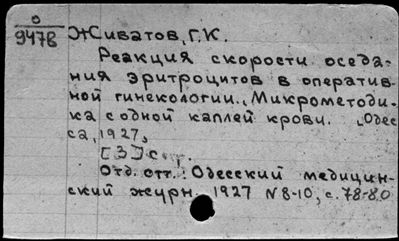 0
9478
Живатов, Г.К.
Реакция скорости оседа-
ния эритроцитов в оператив-
ной гинекологии. Микрометоди-
ка с одной каплей крови. Одес
са, 1927,
[3] с
Отд. отт.: Одесский медицин-
ский журн. 1927 N 8-10, с. 78-80